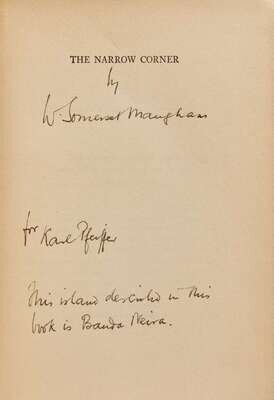 THE NARROW CORNER
by
W. Somerset Maugham
for Karl Pfeiffer
This island described in this
book is Banda Neira.